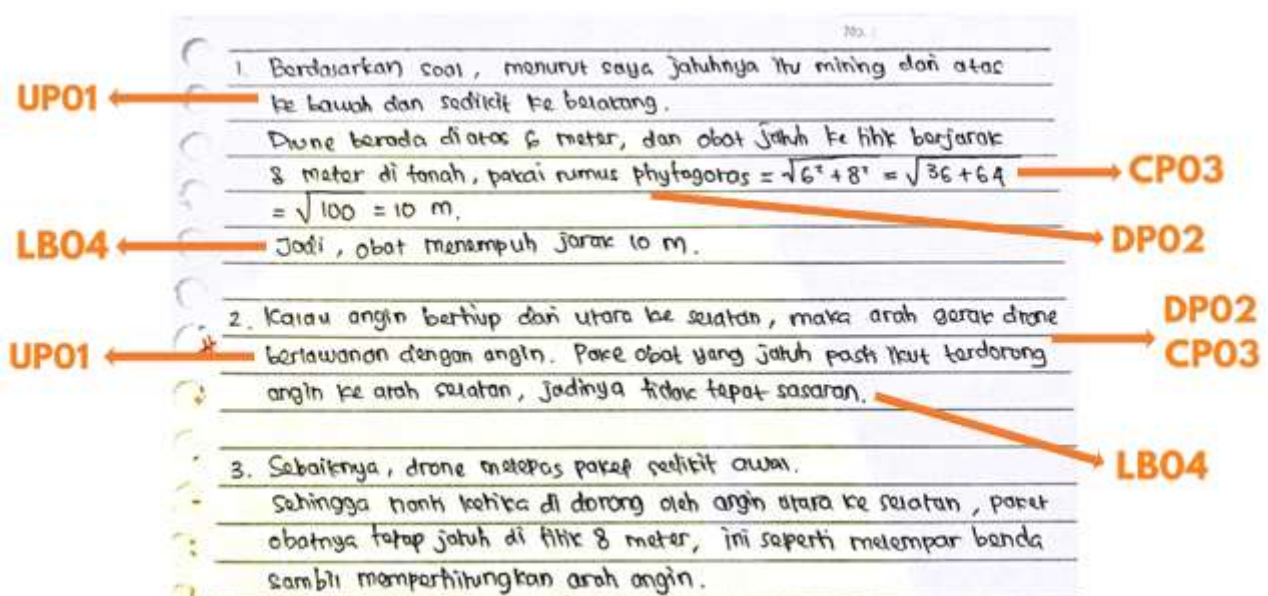 No. :
1. Berdasarkan soal, menurut saya jatuhnya itu miring dari atas
UP01
ke bawah dan sedikit ke belakang.
Drone berada di atas 6 meter, dan obat jatuh ke titik berjarak
8 meter di tanah, pakai rumus phytagoras = √6² + 8² = √36 + 64
CP03
= √100 = 10 m.
DP02
LB04
Jadi, obat menempuh jarak 10 m.
2. Kalau angin bertiup dari utara ke selatan, maka arah gerak drone
DP02
CP03
UP01
berlawanan dengan angin. Paket obat yang jatuh pasti ikut terdorong
angin ke arah selatan, jadinya tidak tepat sasaran.
LB04
3. Sebaiknya, drone melepas paket sedikit awal.
Sehingga nanti ketika di dorong oleh angin utara ke selatan, paket
obatnya tetap jatuh di titik 8 meter, ini seperti melempar benda
sambil memperhitungkan arah angin.